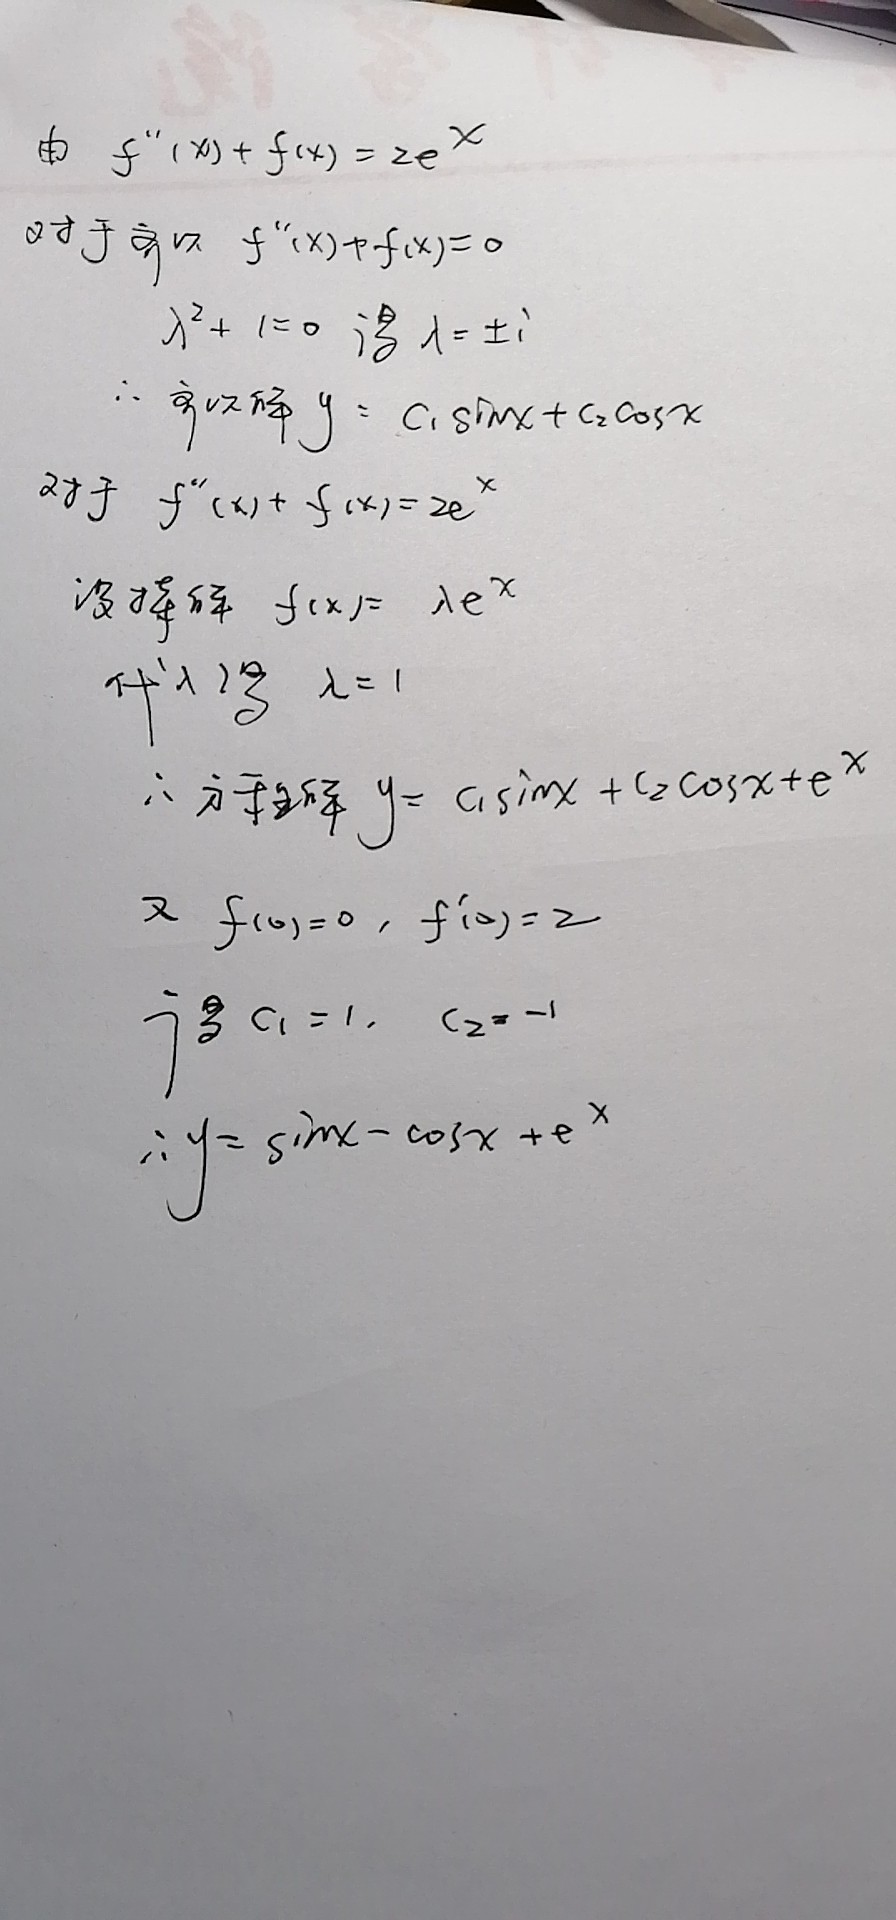 由 f''(x)+f(x)=2e^x
对于齐次 f''(x)+f(x)=0
λ²+1=0 得 λ=±i
∴ 齐次解 y=C₁sinx+C₂cosx
对于 f''(x)+f(x)=2e^x
设特解 f(x)=λe^x
代入得 λ=1
∴ 方程解 y=C₁sinx+C₂cosx+e^x
又 f(0)=0, f'(0)=2
得 C₁=1, C₂=-1
∴y=sinx-cosx+e^x